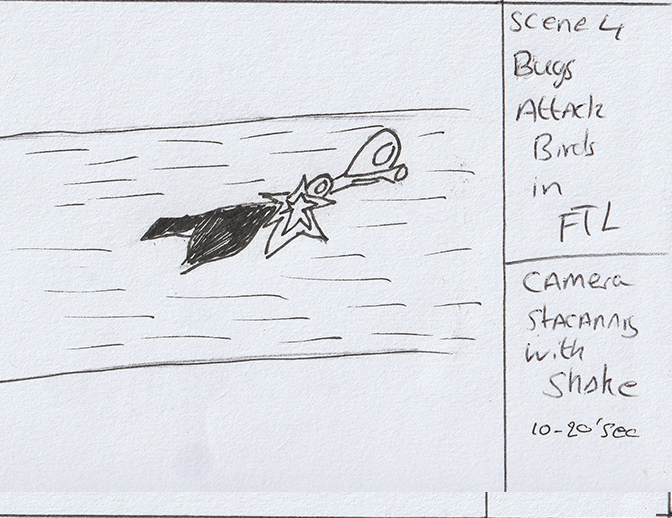 Scene 4
Bugs
Attack
Birds
in
FTL
Camera
with
Shake
10-20 sec